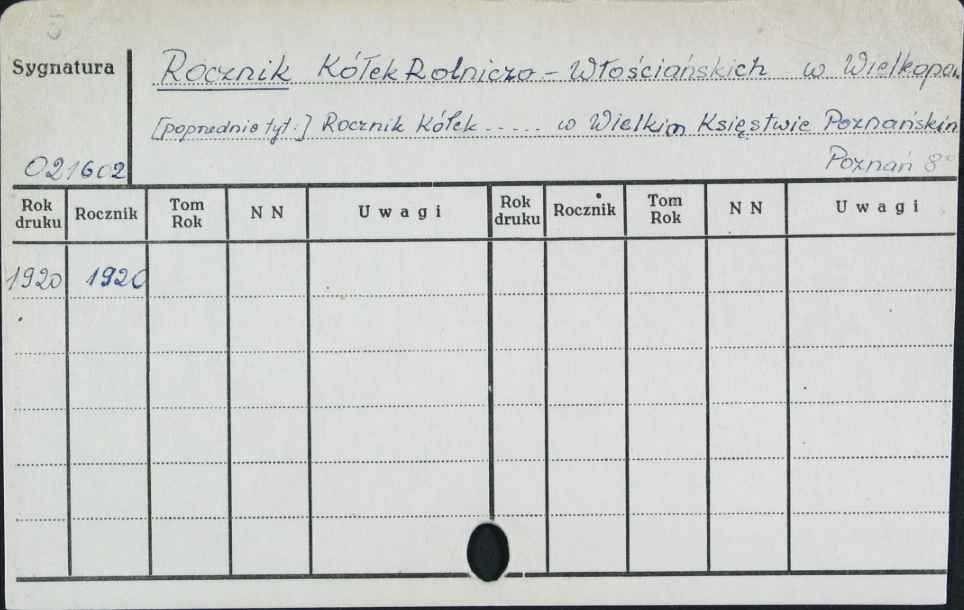 Sygnatura
Rocznik Kółek Rolniczo - Włościańskich w Wielkopol.
[poprzednio tyt.:] Rocznik Kółek ..... w Wielkim Księstwie Poznańskim
021602 Poznań 8°
Rok druku Rocznik Tom Rok NN Uwagi Rok druku Rocznik Tom Rok NN Uwagi
1920 1920